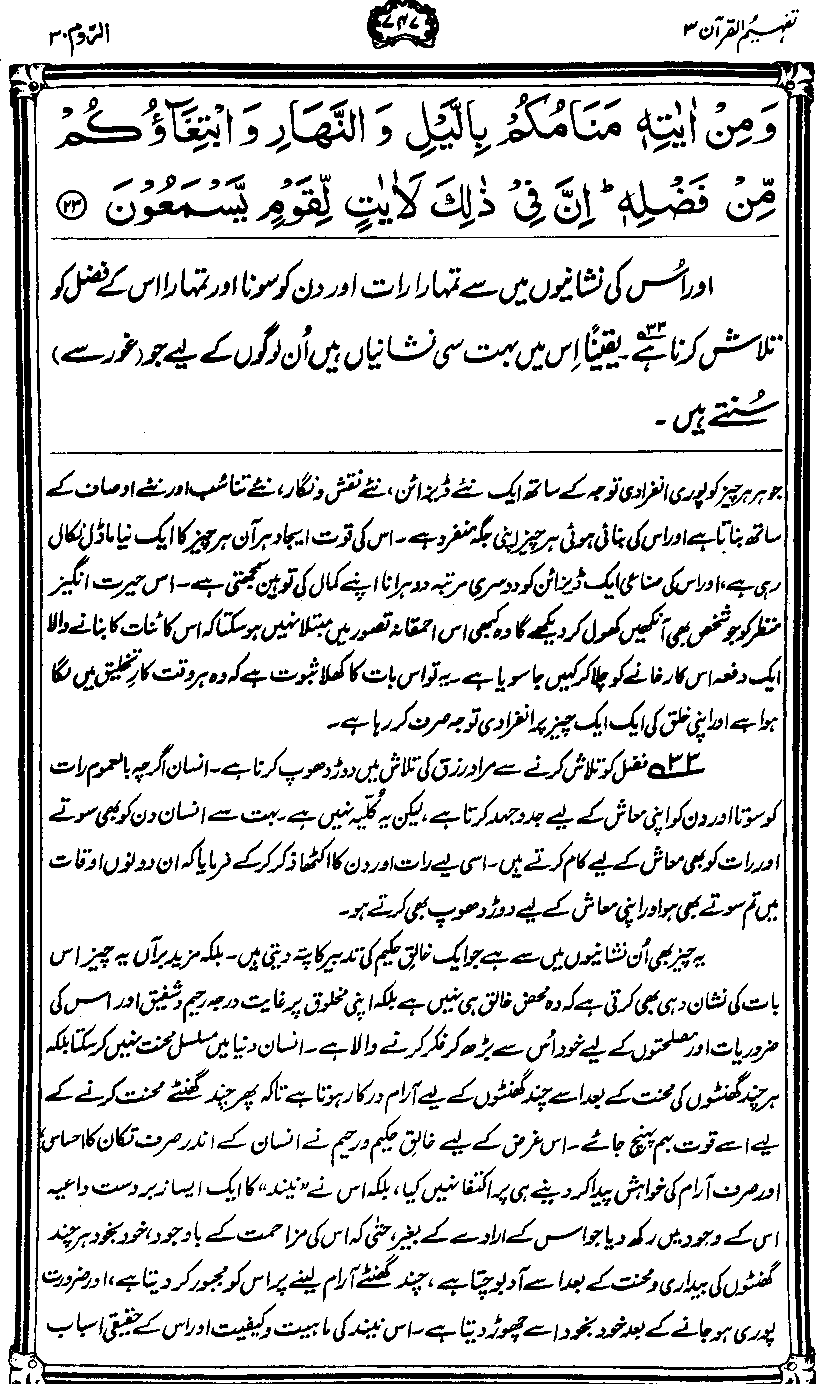 تفہیم القرآن ۳
۷۴۷
الروم ۳۰
وَمِنْ اٰيٰتِهٖ مَنَامُكُمْ بِالَّيْلِ وَ النَّهَارِ وَ ابْتِغَآؤُكُمْ
مِّنْ فَضْلِهٖ ؕ اِنَّ فِيْ ذٰلِكَ لَاٰيٰتٍ لِّقَوْمٍ يَّسْمَعُوْنَ ﴿۲۳﴾
اور اُس کی نشانیوں میں سے تمہارا رات اور دن کو سونا اور تمہارا اس کے فضل کو
تلاش کرنا ہے۳۳۔ یقیناً اِس میں بہت سی نشانیاں ہیں اُن لوگوں کے لیے جو (غور سے)
سُنتے ہیں۔
جو ہر ہر چیز کو پوری انفرادی توجہ کے ساتھ ایک نئے ڈیزائن، نئے نقش و نگار، نئے تناسُب اور نئے اوصاف کے
ساتھ بناتا ہے اور اس کی بنائی ہوئی ہر چیز اپنی جگہ منفرد ہے۔ اس کی قوت ایجاد ہر آن ہر چیز کا ایک نیا ماڈل نکال
رہی ہے، اور اس کی صناعی ایک ڈیزائن کو دوسری مرتبہ دوہرانا اپنے کمال کی توہین سمجھتی ہے۔ اس حیرت انگیز
منظر کو جو شخص بھی آنکھیں کھول کر دیکھے گا وہ کبھی اس احمقانہ تصور میں مبتلا نہیں ہو سکتا کہ اس کائنات کا بنانے والا
ایک دفعہ اس کارخانے کو چلا کر کہیں جا سویا ہے۔ یہ تو اس بات کا کھلا ثبوت ہے کہ وہ ہر وقت کارِ تخلیق میں لگا
ہوا ہے اور اپنی خلق کی ایک ایک چیز پر انفرادی توجہ صرف کر رہا ہے۔
۳۳ فضل کو تلاش کرنے سے مراد رزق کی تلاش میں دوڑ دھوپ کرنا ہے۔ انسان اگرچہ بالعموم رات
کو سوتا اور دن کو اپنی معاش کے لیے جدوجہد کرتا ہے، لیکن یہ کُلّیہ نہیں ہے۔ بہت سے انسان دن کو بھی سوتے
اور رات کو بھی معاش کے لیے کام کرتے ہیں۔ اسی لیے رات اور دن کا اکٹھا ذکر کر کے فرمایا کہ ان دونوں اوقات
میں تم سوتے بھی ہو اور اپنی معاش کے لیے دوڑ دھوپ بھی کرتے ہو۔
یہ چیز بھی اُن نشانیوں میں سے ہے جو ایک خالق حکیم کی تدبیر کا پتہ دیتی ہیں۔ بلکہ مزید برآں یہ چیز اس
بات کی نشان دہی بھی کرتی ہے کہ وہ محض خالق ہی نہیں ہے بلکہ اپنی مخلوق پر غایت درجہ رحیم و شفیق اور اس کی
ضروریات اور مصلحتوں کے لیے خود اُس سے بڑھ کر فکر کرنے والا ہے۔ انسان دنیا میں مسلسل محنت نہیں کر سکتا بلکہ
ہر چند گھنٹوں کی محنت کے بعد اسے چند گھنٹوں کے لیے آرام درکار ہوتا ہے تاکہ پھر چند گھنٹے محنت کرنے کے
لیے اسے قوت بہم پہنچ جائے۔ اس غرض کے لیے خالق حکیم و رحیم نے انسان کے اندر صرف تکان کا احساس
اور صرف آرام کی خواہش پیدا کر دینے ہی پر اکتفا نہیں کیا، بلکہ اس نے ”نیند“ کا ایک ایسا زبردست داعیہ
اس کے وجود میں رکھ دیا جو اس کے ارادے کے بغیر، حتٰی کہ اس کی مزاحمت کے باوجود، خود بخود ہر چند
گھنٹوں کی بیداری و محنت کے بعد اسے آ دبوچتا ہے، چند گھنٹے آرام لینے پر اس کو مجبور کر دیتا ہے، اور ضرورت
پوری ہو جانے کے بعد خود بخود اسے چھوڑ دیتا ہے۔ اس نیند کی ماہیت و کیفیت اور اس کے حقیقی اسباب